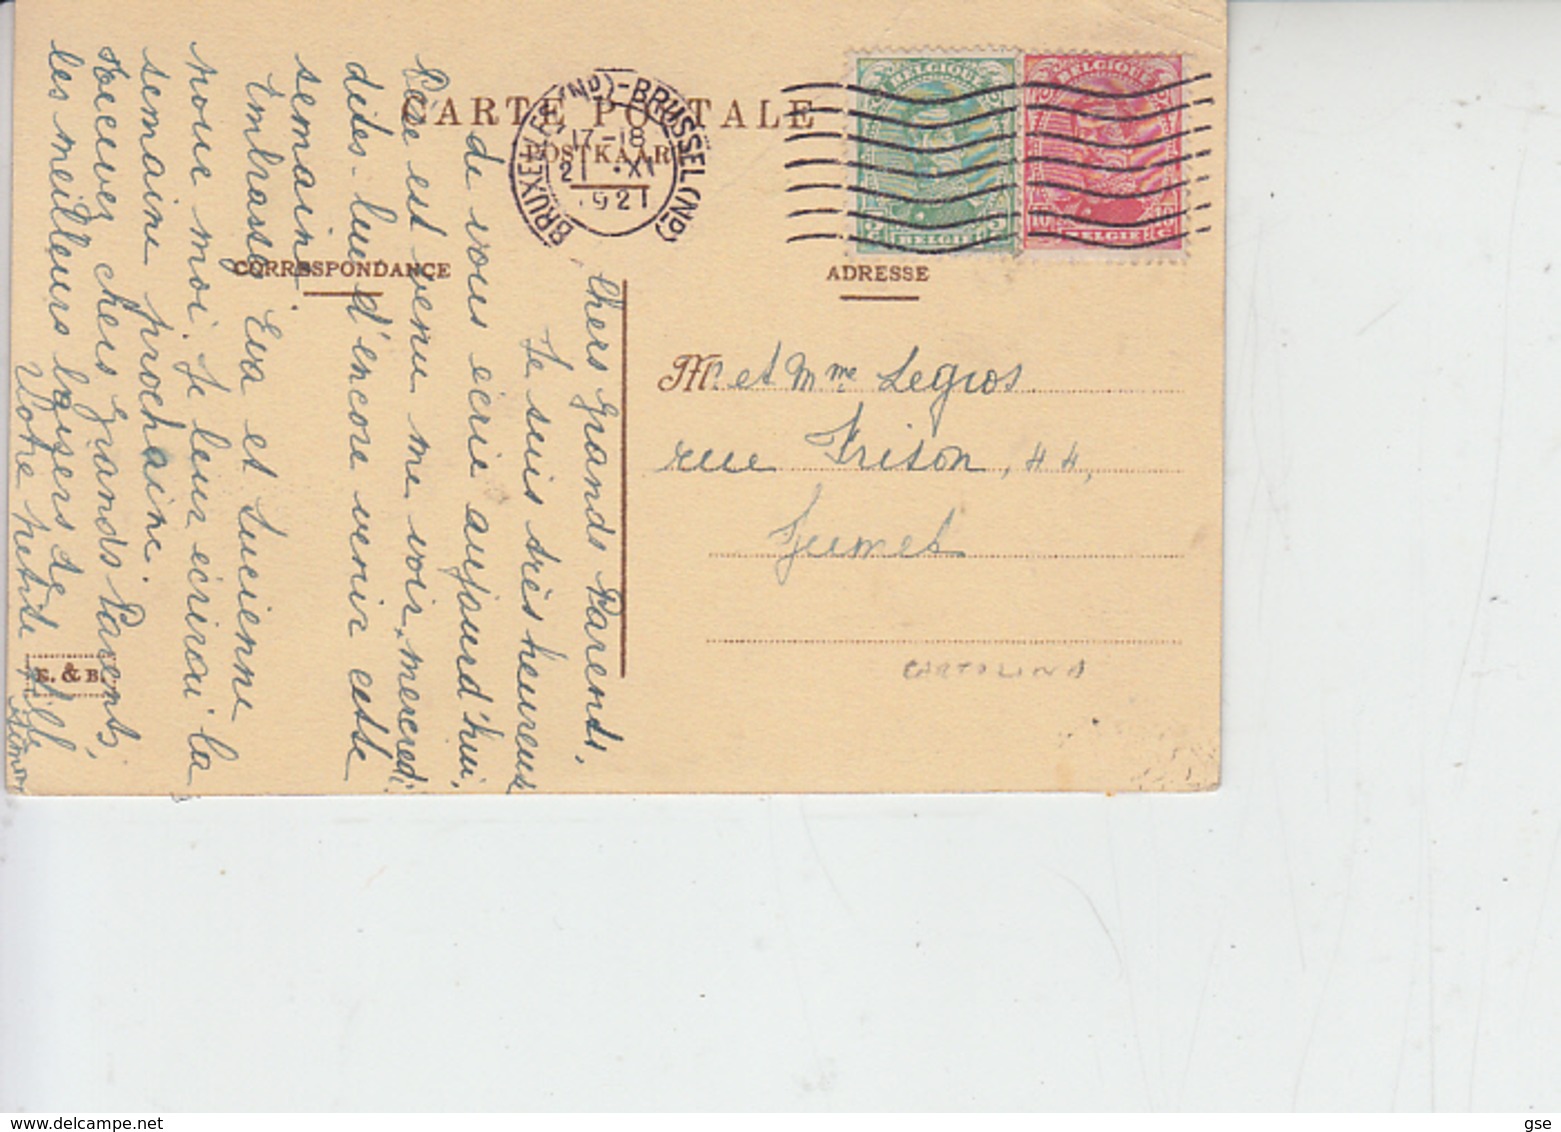 CARTE POSTALE
POSTKAART
BRUXELLES (ND) - BRUSSEL (ND)
17-18
21 XI
1921
BELGIQUE
5 5
BELGIE
BELGIQUE
10 10
BELGIE
CORRESPONDANCE
ADRESSE
Mr. et Mme Legros
rue Frison, 44,
Jumet
CARTOLINA
Chers Grands Parents,
Je suis très heureux
de vous écrire aujourd'hui,
Père est venu me voir, mercredi
dites-lui d'encore venir cette
semaine.
Embrassez Eva et Lucienne
pour moi. Je leur écrirai la
semaine prochaine.
Recevez chers Grands Parents,
les meilleurs baisers de
Votre petite fille
Simone
E. & B.
gse